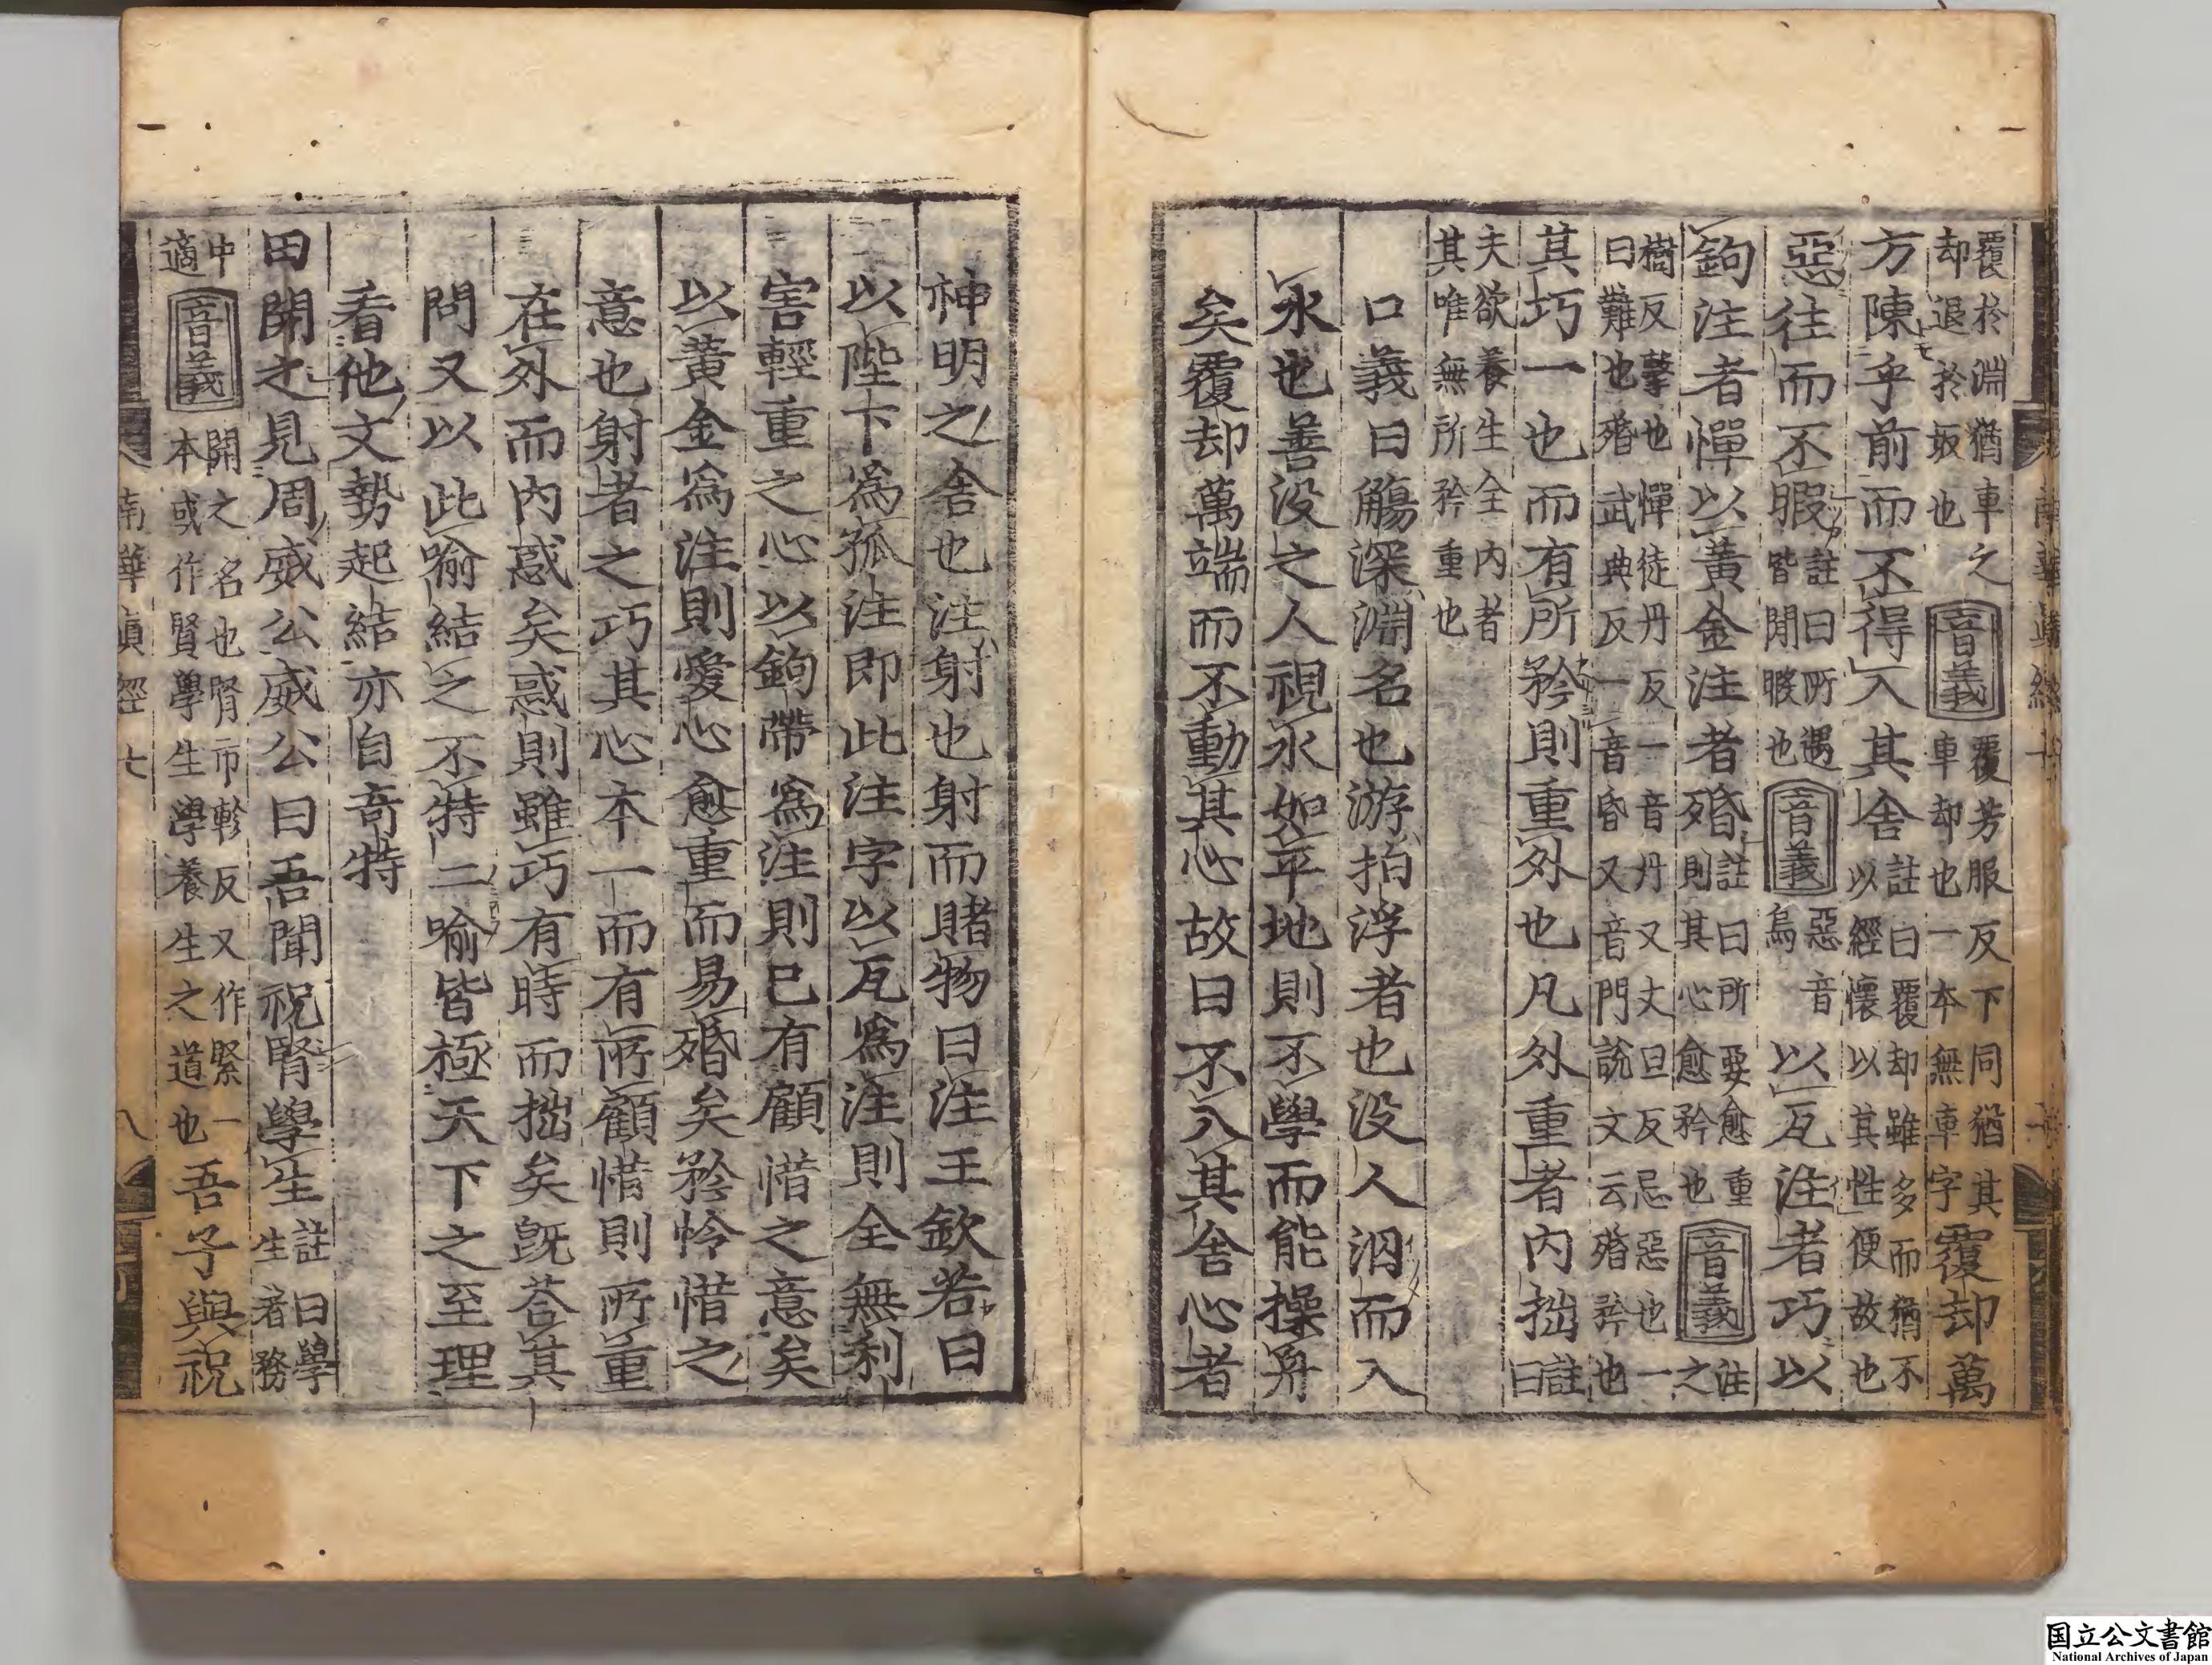 覆於淵猶車之
却退於坂也
音義
覆芳服反下同猶其
車却也一本無車字
覆却萬
方陳乎前而不得入其舍
註曰覆却雖多而猶不
以經懷以其性便故也
惡往而不暇
註曰所遇
皆閒暇也
音義
惡音
烏
以瓦注者巧以
鉤注者憚以黃金注者殙
註曰所要愈重
則其心愈矜也
音義
注
之
樹反擊也憚徒丹反一音丹又丈旦反忌惡也一
曰難也殙武典反一音昏又音門說文云殙矜也
其巧一也而有所矜則重外也凡外重者內拙
註
曰
夫欲養生全內者
其唯無所矜重也
口義曰觴深淵名也游拍浮者也没人泅而入
水也善没之人視水如平地則不學而能操舟
矣覆却萬端而不動其心故曰不入其舍心者
神明之舍也注射也射而賭物曰注王欽若曰
以陛下爲孤注即此注字以瓦爲注則全無利
害輕重之心以鉤帶爲注則已有顧惜之意矣
以黃金爲注則愛心愈重而易殙矣矜怜惜之
意也射者之巧其心本一而有所顧惜則所重
在外而內惑矣惑則雖巧有時而拙矣旣荅其
問又以此喻結之不特二喻皆極天下之至理
看他文勢起結亦自奇特
田開之見周威公威公曰吾聞祝腎學生
註曰學
生者務
中
適
音義
開之名也腎市軫反又作緊一
本或作賢學生學養生之道也
吾子與祝
南華眞經七
八
国立公文書館
National Archives of Japan